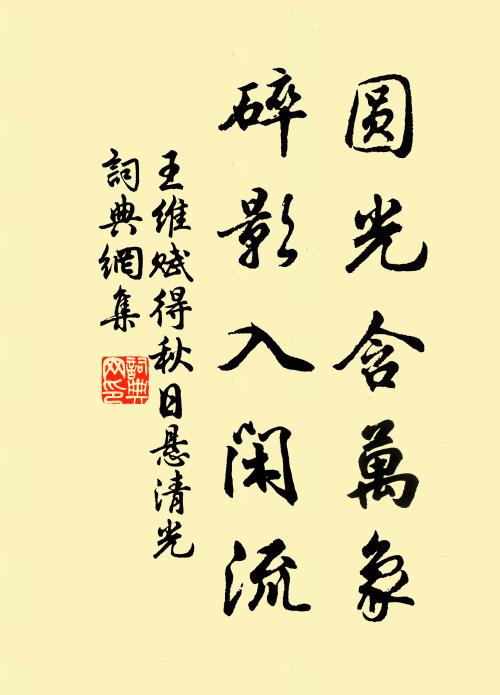 圆光含萬象
碎影入闲流
王维赋得秋日悬清光
詞典網集
詞典
网印